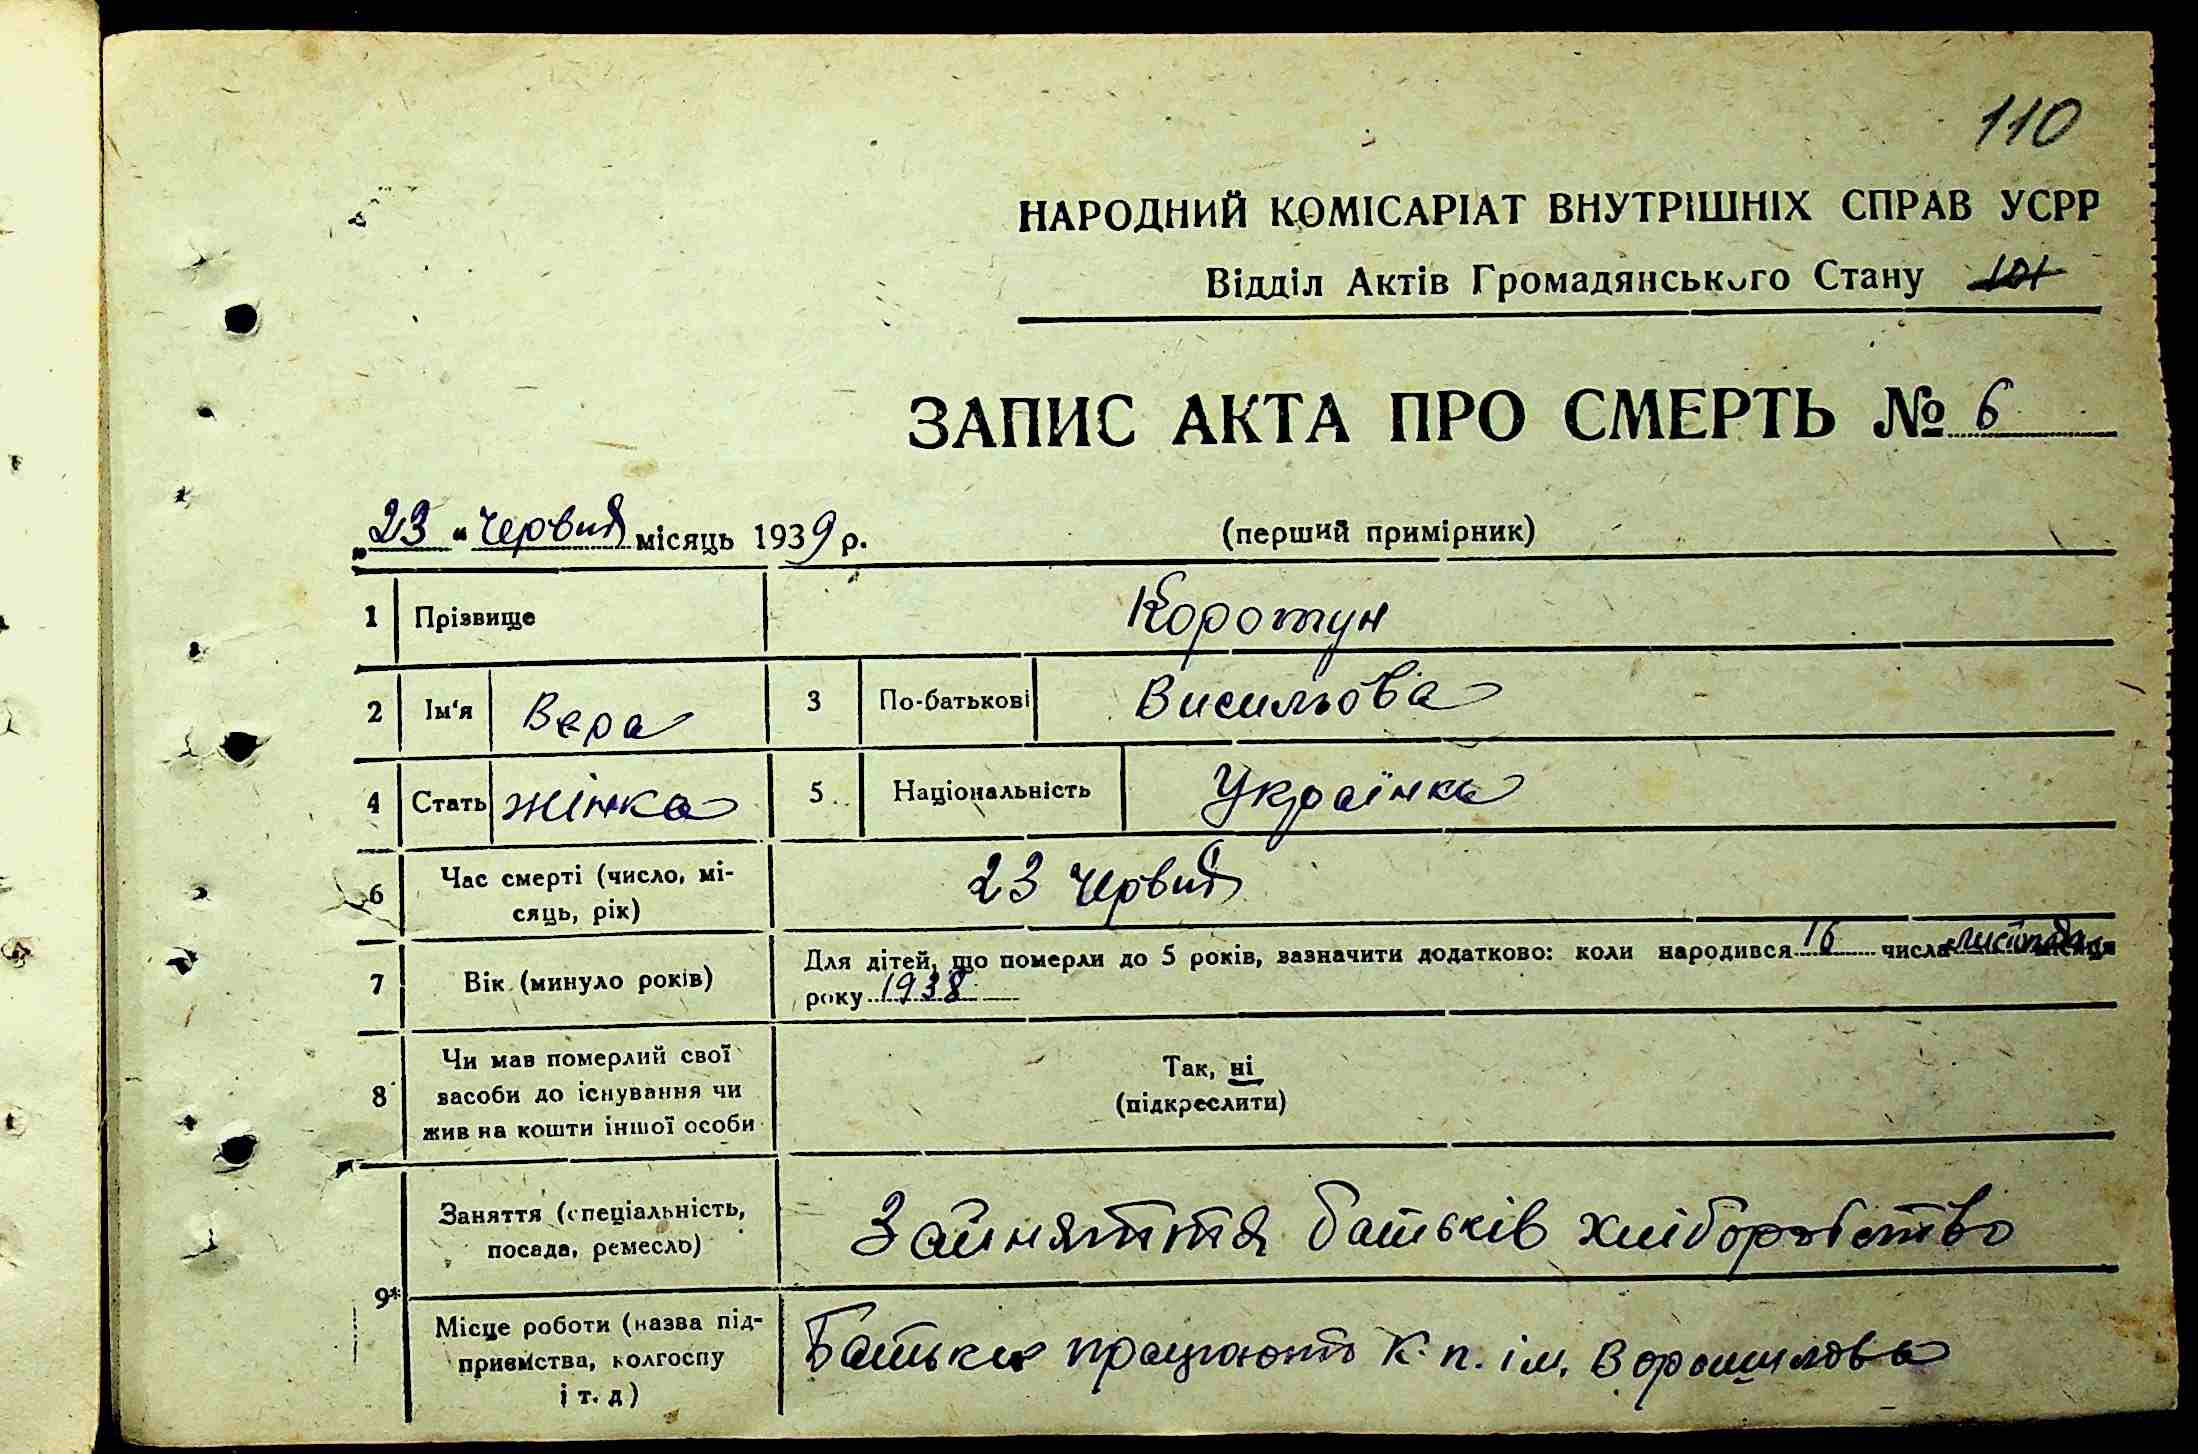 110
НАРОДНИЙ КОМІСАРІАТ ВНУТРІШНІХ СПРАВ УСРР
Відділ Актів Громадянського Стану 101
ЗАПИС АКТА ПРО СМЕРТЬ № 6
„23“ Червня місяць 1939 р. (перший примірник)
1 Прізвище Коротун
2 Ім'я Вера 3 По-батькові Висильова
4 Стать жінка 5 Національність Українка
6 Час смерті (число, мі-
сяць, рік) 23 Червня
7 Вік (минуло років) Для дітей, що померли до 5 років, зазначити додатково: коли народився 16 числа листопада місяця
року 1938
8 Чи мав померлий свої
засоби до існування чи
жив на кошти іншої особи
Так, ні
(підкреслити)
9*
Заняття (спеціальність,
посада, ремесло) Зайняття батьків хліборобство
Місце роботи (назва під-
приємства, колгоспу
і т. д) Батьки працюють К. п. ім. Ворошилова